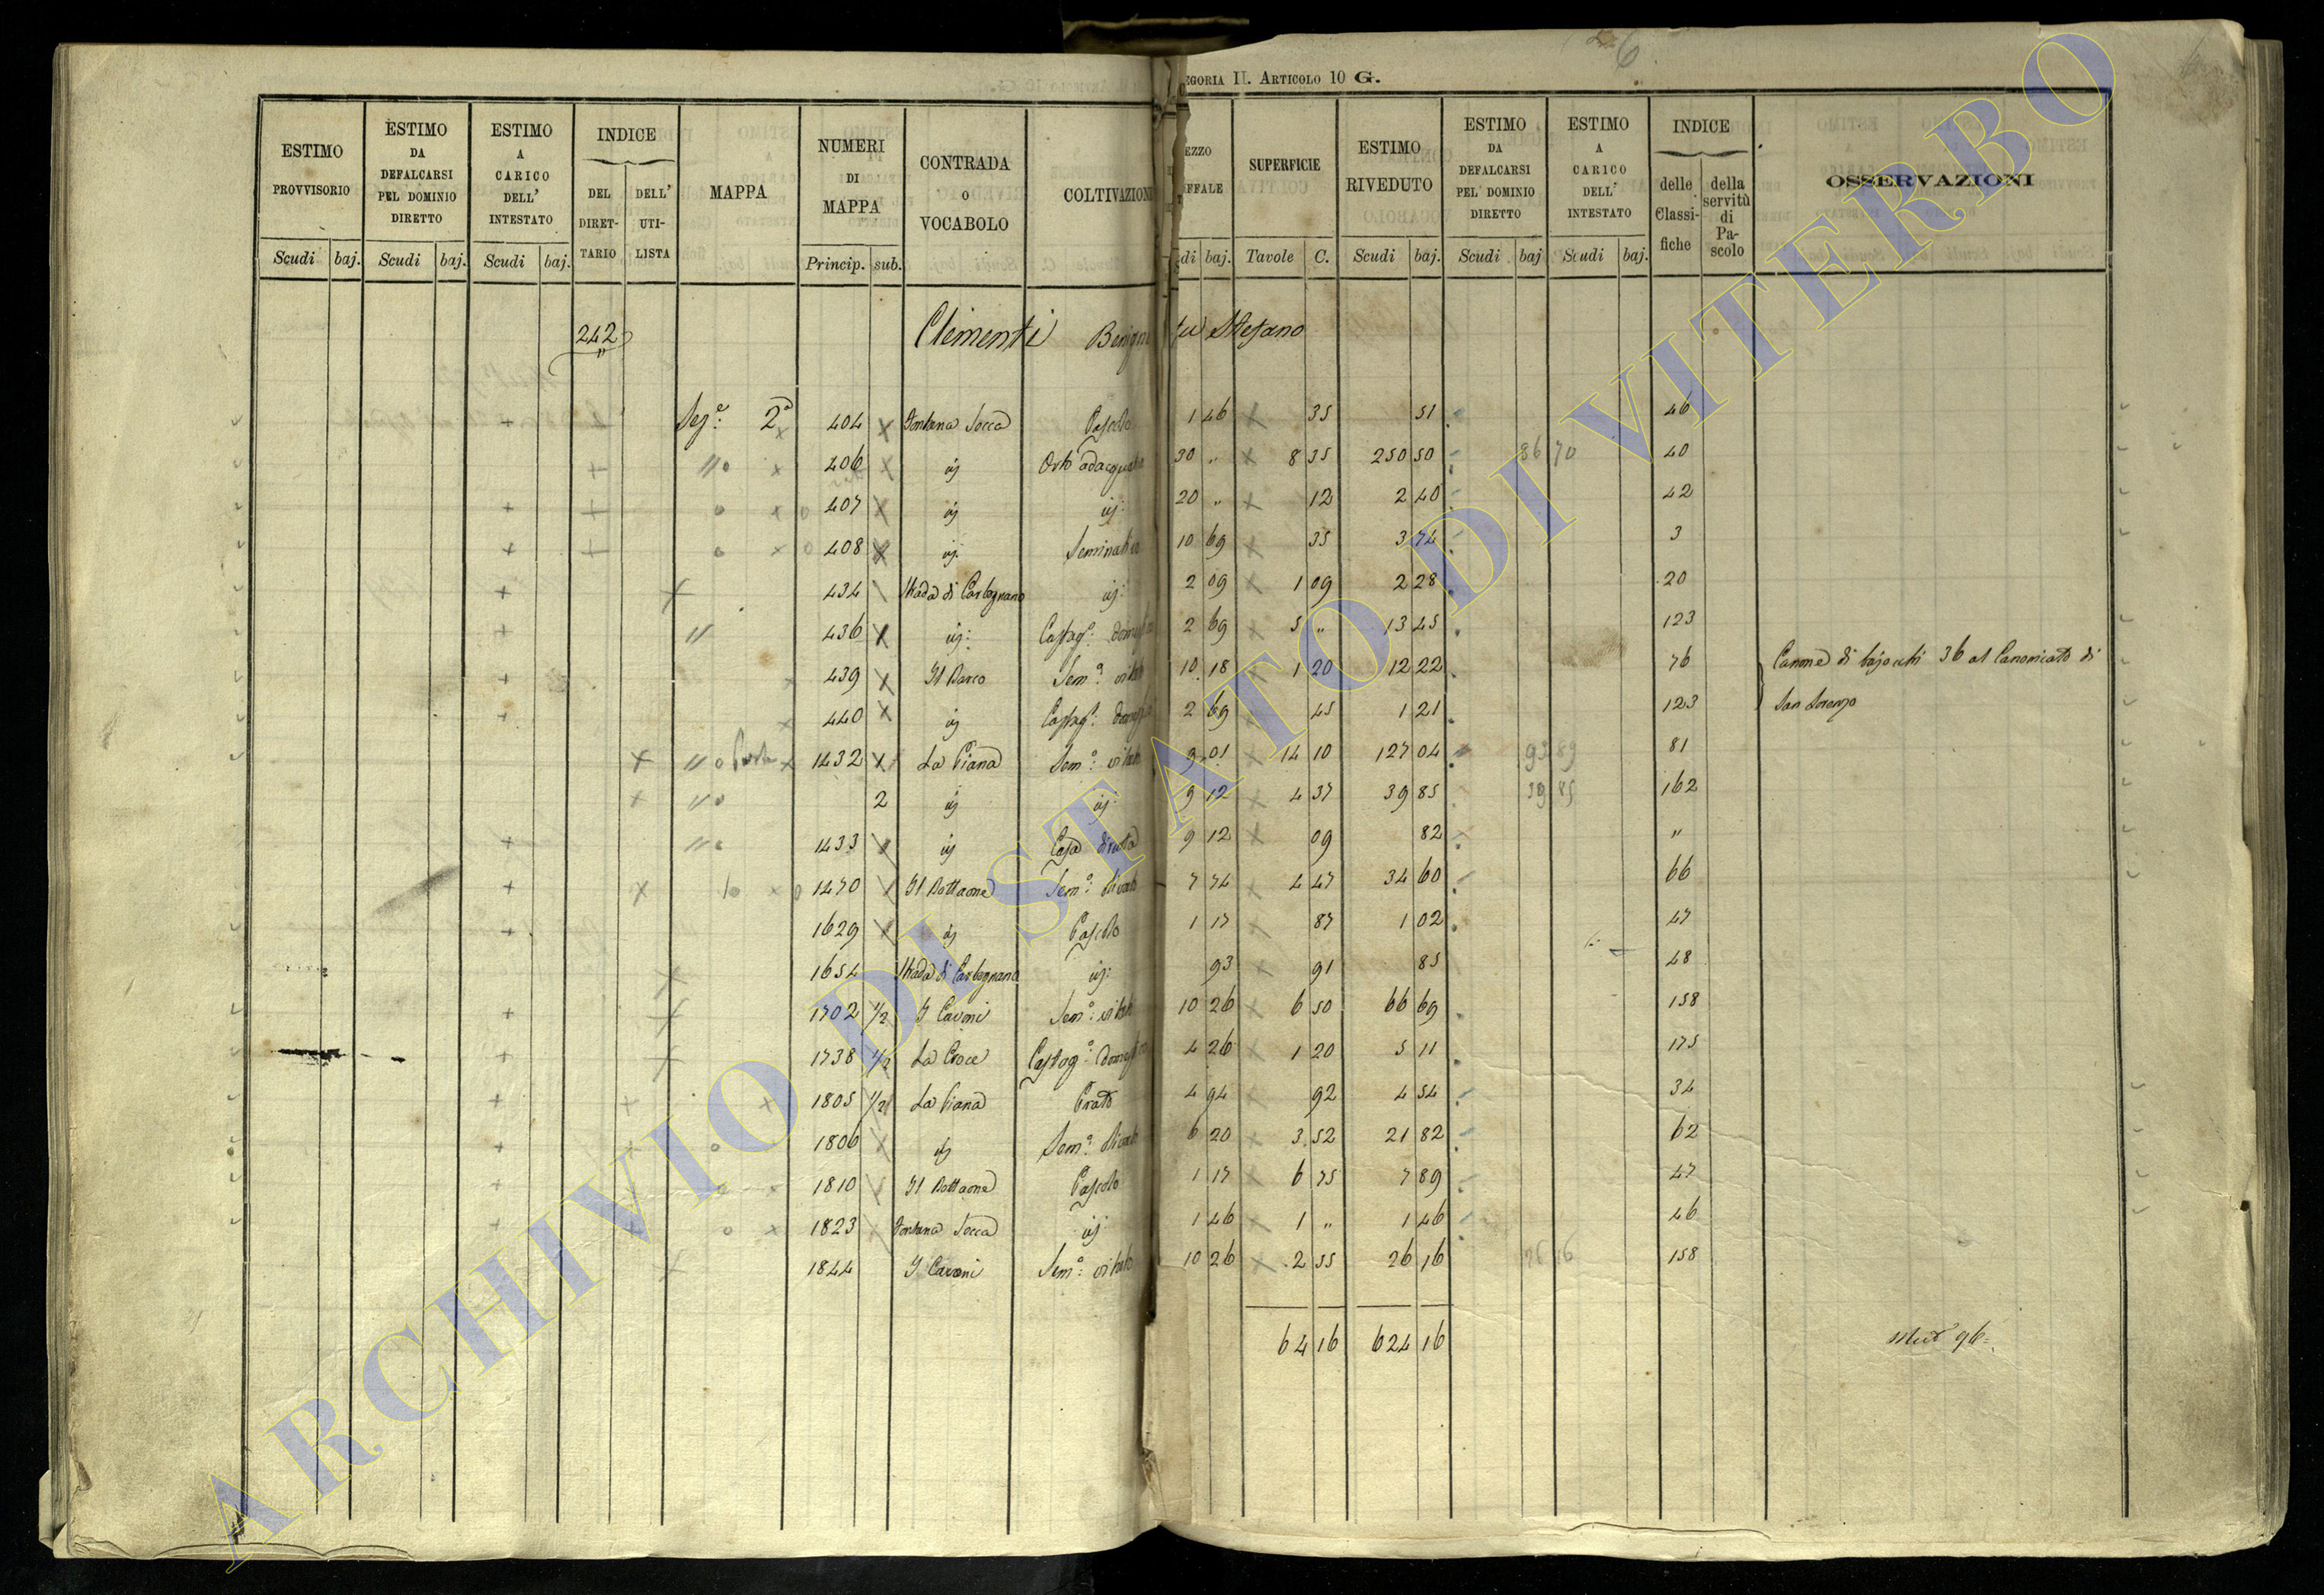 6
EGORIA II. ARTICOLO 10 G.
ESTIMO PROVVISORIO | ESTIMO DA DEFALCARSI PEL DOMINIO DIRETTO | ESTIMO A CARICO DELL' INTESTATO | INDICE DEL DIRETTARIO | DELL' UTILISTA | MAPPA | NUMERI DI MAPPA | CONTRADA O VOCABOLO | COLTIVAZION | EZZO IFFALE | SUPERFICIE | ESTIMO RIVEDUTO | ESTIMO DA DEFALCARSI PEL DOMINIO DIRETTO | ESTIMO A CARICO DELL' INTESTATO | INDICE delle Classifiche | della servitù di Pascolo | OSSERVAZIONI
Scudi baj. Scudi baj. Scudi baj. Princip. sub. di baj. Tavole C. Scudi baj. Scudi baj Scudi baj.
242 Clementi Benign fu Stefano
Sez.e 2a 404 Fontana Secca Pascolo 1 46 35 51 46
" 406 ij Orto adacquato 30 " 8 35 250 50 86 70 40
407 ij ij: 20 " 12 2 40 42
408 ij: Seminativo 10 69 35 3 74 3
434 Strada di Carbognano ij: 2 09 1 09 2 28 20
" 436 ij: Castag.o: domest 2 69 5 " 13 45 123
439 Il Barco Sem.o: vitato 10 18 1 20 12 22 76 Canone di bajocchi 36 al Canonicato di
440 ij Castag.o: domest 2 69 45 1 21 123 San Lorenzo
" 1432 La Piana Sem.o: vitato 9 01 14 10 127 04 93 89 81
" 2 ij ij: 9 12 4 37 39 85 39 85 162
" 1433 ij Casa diruta 9 12 09 82 "
1470 Il Bottaone Sem.o: olivato 7 74 4 47 34 60 66
1629 ij Pascolo 1 17 87 1 02 47
1654 Strada di Carbognano ij: 93 91 85 48
1702 1/2 I Cavoni Sem.o: vitato 10 26 6 50 66 69 158
1738 1/2 La Croce Castag.o: domest 4 26 1 20 5 11 175
1805 1/2 La Piana Prato 4 94 92 4 54 34
1806 ij Sem.o: olivato 6 20 3 52 21 82 62
1810 Il Bottaone Pascolo 1 17 6 75 7 89 47
1823 Fontana Secca ij 1 46 1 " 1 46 46
1844 I Cavoni Sem.o: vitato 10 26 2 55 26 16 26 16 158
64 16 624 16
96
ARCHIVIO DI STATO DI VITERBO